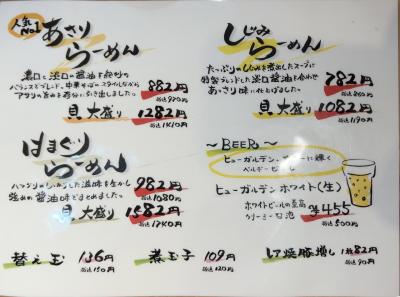 人気No1
あさり
らーめん
濃口と淡口の醤油を絶妙の
バランスでブレンド、中華そばのスタイルながら
アサリの旨みを存分に引き出しました。
882円
税込970円
貝大盛り 1282円
税込1410円
はまぐり
らーめん
ハマグリの
滋味を生かし
強めの醤油味でまとめました。
982円
税込1080円
貝大盛り 1582円
税込1740円
しじみ
らーめん
たっぷりのしじみを煮出したスープに
特製ブレンドした淡口醤油を合わせ
あっさり味に仕上げました。
782円
税込860円
貝大盛り 1082円
税込1190円
～BEER～
ヒューガルデン
に輝く
ベルギービール
ヒューガルデンホワイト(生)
ホワイトビールの最高
クリーミーな泡
¥455
税込500円
替え玉 136円
税込150円
煮玉子 109円
税込120円
レア焼豚増し 1枚82円
税込90円